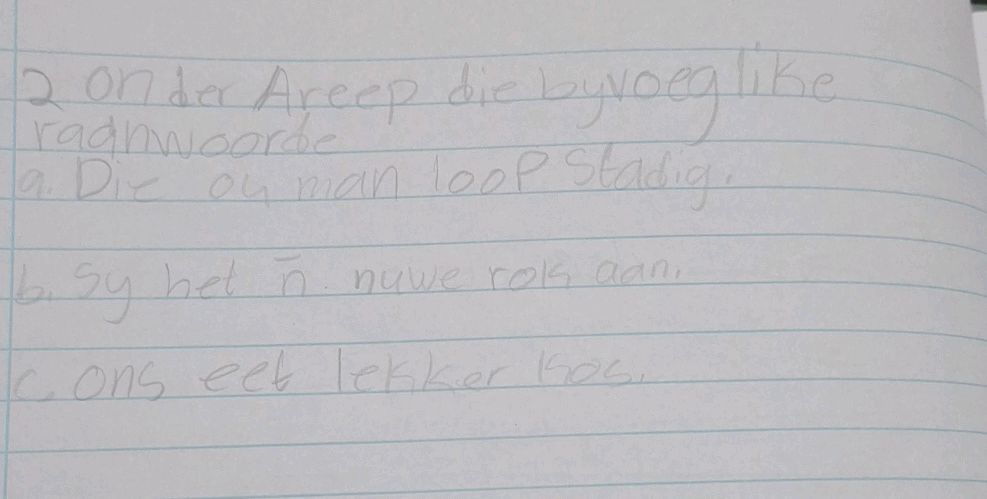 2 onder Areep die byvoeglike
ragnwoorde
a. Die ou man loop stadig.
b. Sy het n̄ nuwe rok aan.
c. ons eet lekker kos.